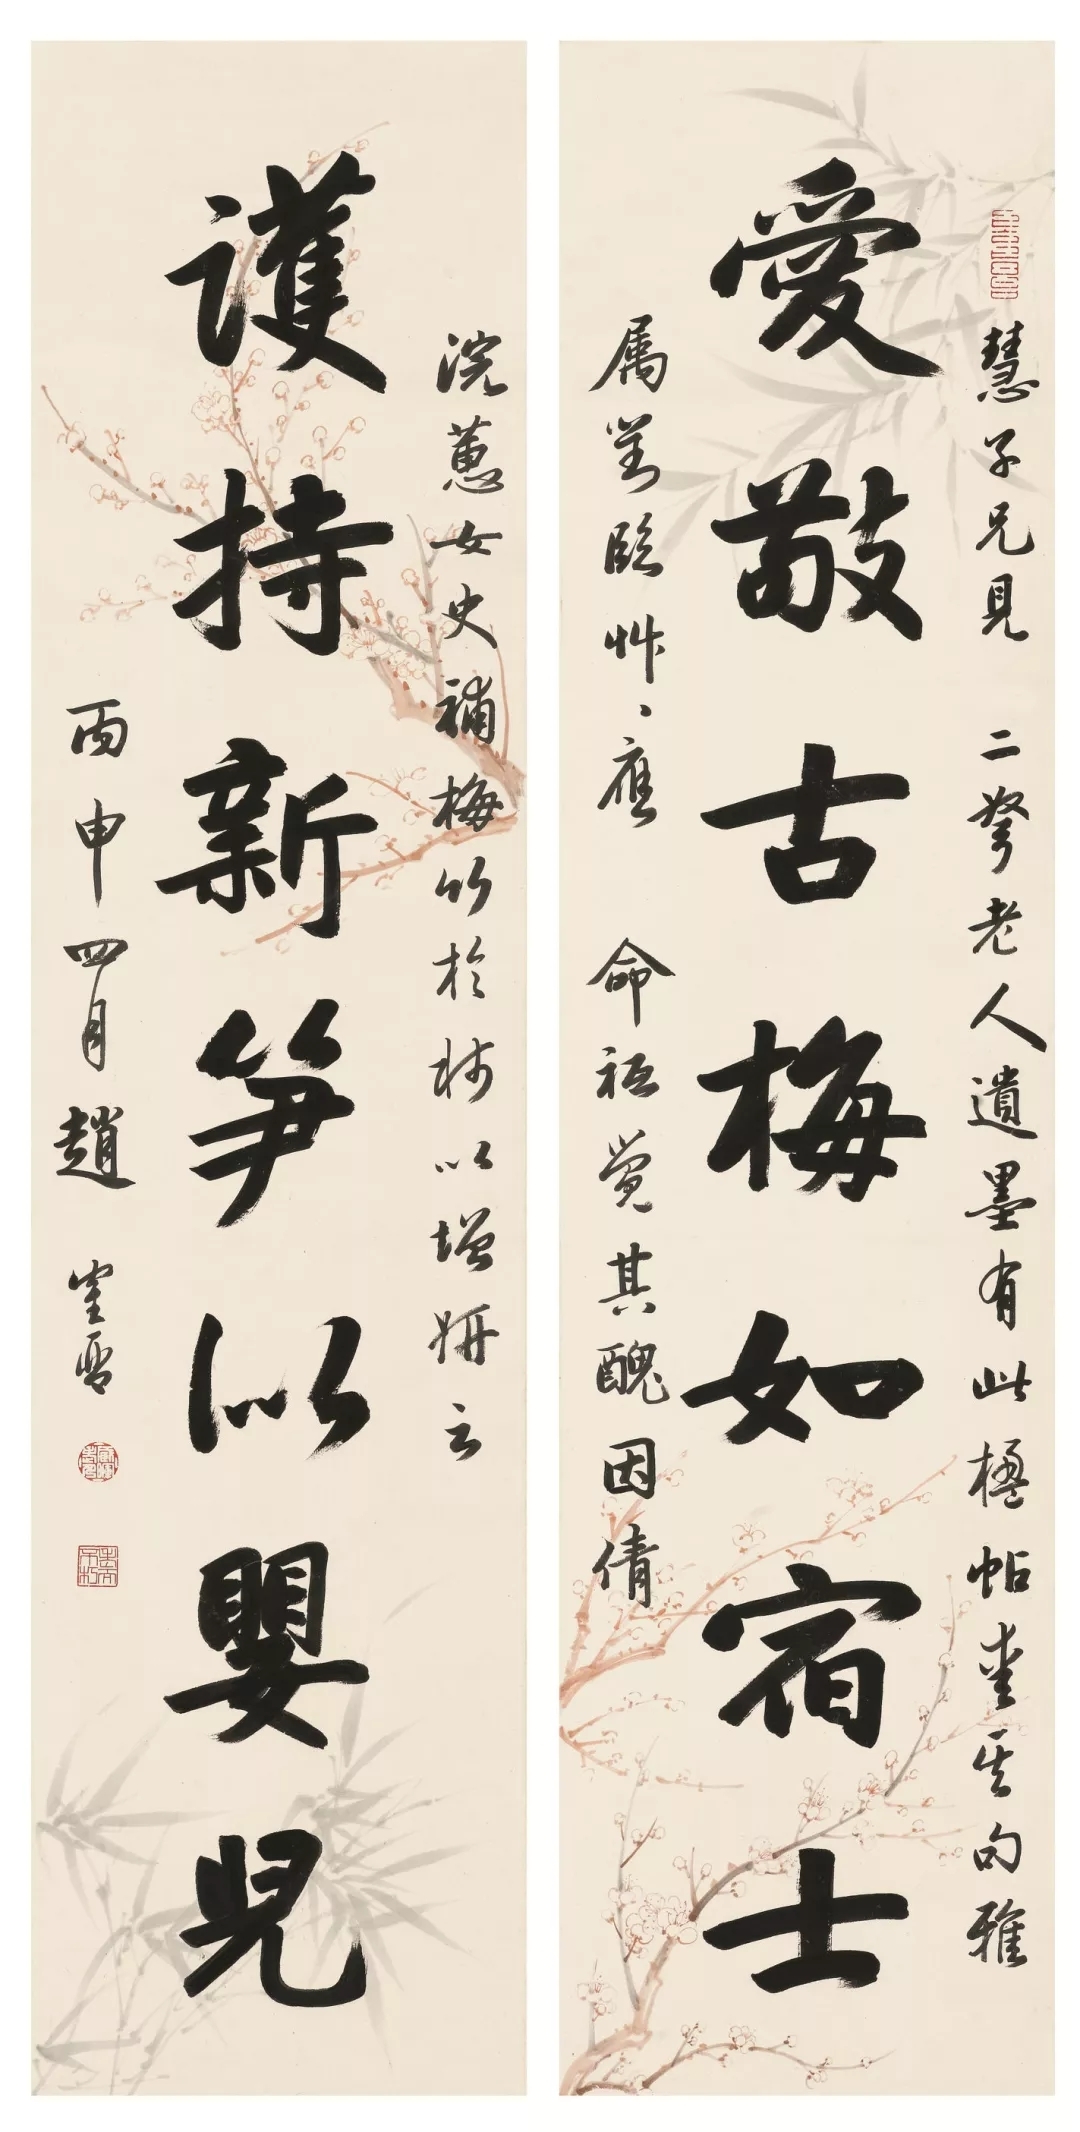 愛敬古梅如宿士
慧子兄見 二弩老人遺墨有此楹帖 愛其句雅
屬對臨 艸艸應 命祗覺其醜因倩
浣蕙女史補梅竹於 以增妍云
護持新笋似嬰兒
丙申四月趙